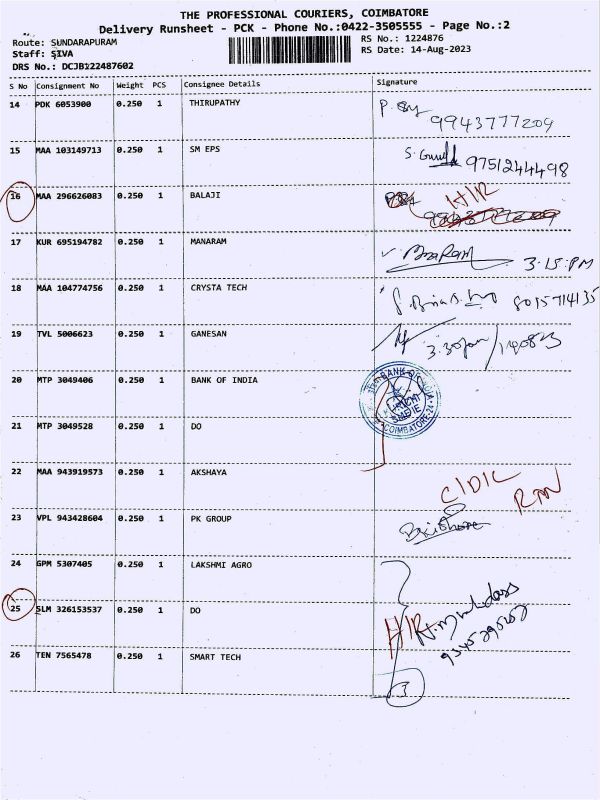 THE PROFESSIONAL COURIERS, COIMBATORE
Delivery Runsheet - PCK - Phone No.:0422-3505555 - Page No.:2
Route: SUNDARAPURAM RS No.: 1224876
Staff: SIVA RS Date: 14-Aug-2023
DRS No.: DCJB122487602
S No Consignment No Weight PCS Consignee Details Signature
14 PDK 6053900 0.250 1 THIRUPATHY
9943777209
15 MAA 103149713 0.250 1 SM EPS
9751244498
16 MAA 296626083 0.250 1 BALAJI H/R
17 KUR 695194782 0.250 1 MANARAM
3.15.PM
18 MAA 104774756 0.250 1 CRYSTA TECH
8015714135
19 TVL 5006623 0.250 1 GANESAN
20 MTP 3049406 0.250 1 BANK OF INDIA
BANK OF INDIA
COIMBATORE-24
21 MTP 3049528 0.250 1 DO
22 MAA 943919573 0.250 1 AKSHAYA
23 VPL 943428604 0.250 1 PK GROUP
24 GPM 5307405 0.250 1 LAKSHMI AGRO
25 SLM 326153537 0.250 1 DO
H/R
26 TEN 7565478 0.250 1 SMART TECH
3